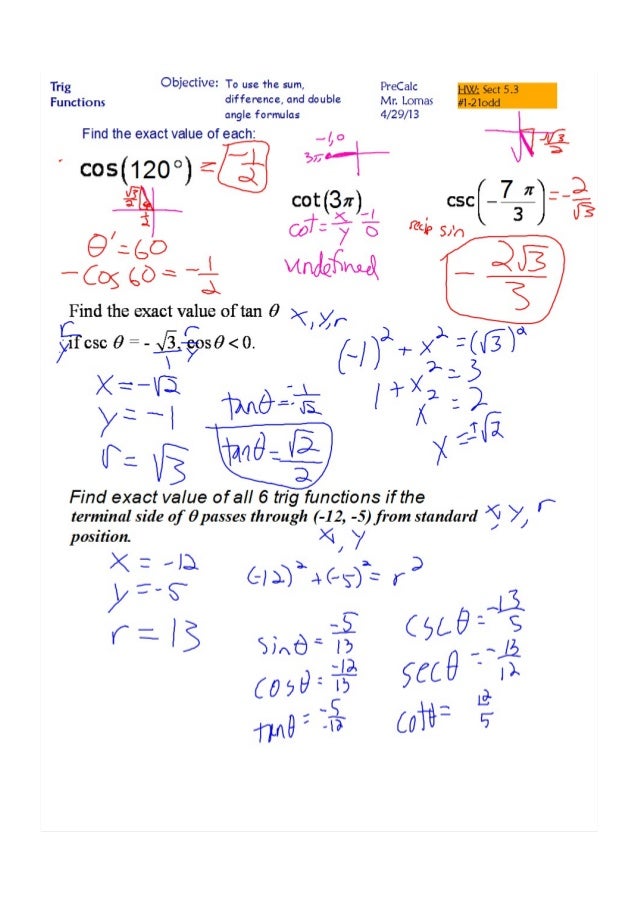 Trig Functions
Objective: To use the sum, difference, and double angle formulas
PreCalc
Mr. Lomas
4/29/13
HW: Sect 5.3
#1-21odd
Find the exact value of each:
cos(120°) = -1/2
√3/2
1/2
θ' = 60
-cos 60 = -1/2
-1,0
3π
cot(3π)
cot = x/y -1/0
undefined
√3/2
csc(-7π/3) = -2/√3
recip sin
-2√3/3
Find the exact value of tan θ x, y, r
if csc θ = - √3, cos θ < 0.
r/y
r/y
1
x = -√2
y = -1
r = √3
tanθ = -1/-√2
tanθ = √2/2
(-1)² + x² = (√3)²
1 + x² = 3
x² = 2
x = ±√2
Find exact value of all 6 trig functions if the
terminal side of θ passes through (-12, -5) from standard x, y, r
position.
x, y
x = -12
y = -5
r = 13
(-12)² + (-5)² = r²
sinθ = -5/13
cosθ = -12/13
tanθ = -5/-12
cscθ = -13/5
secθ = -13/12
cotθ = 12/5